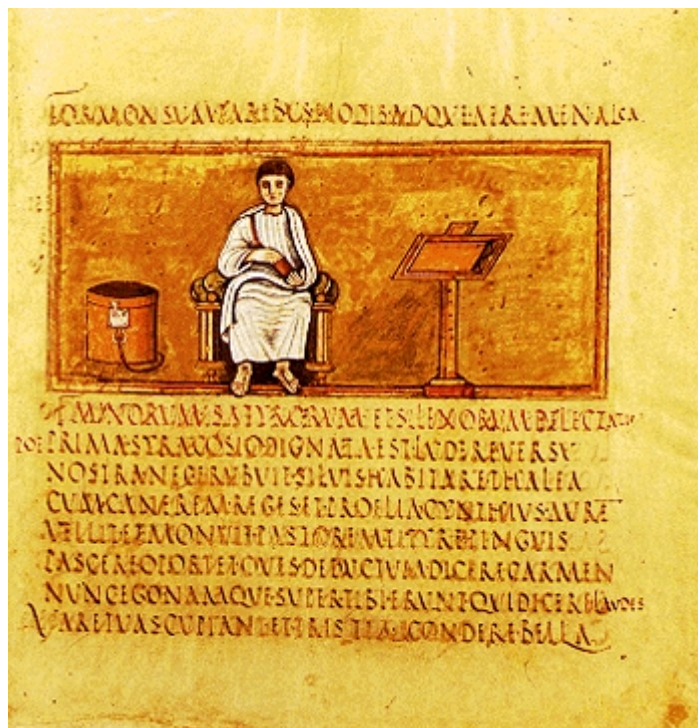 NODIS ATQVE AERE MENALCA
SATYRORVM ET SILENORVM DELECTATIO
POE PRIMA SYRACOSIO DIGNATA EST LVDERE VERSV
NOSTRA NEC ERVBVIT SILVIS HABITARE THALEA
CVM CANEREM REGES ET PROELIA CYNTHIVS AVRE
VELLIT ET MONVIT PASTOREM TITYRE PINGVIS
PASCERE OPORTET OVIS DEDVCTVM DICERE CARMEN
NVNC EGO NAMQVE SVPER TIBI ERVNT QVI DICERE LAVDES
VARE TVAS CVPIANT ET TRISTIA CONDERE BELLA